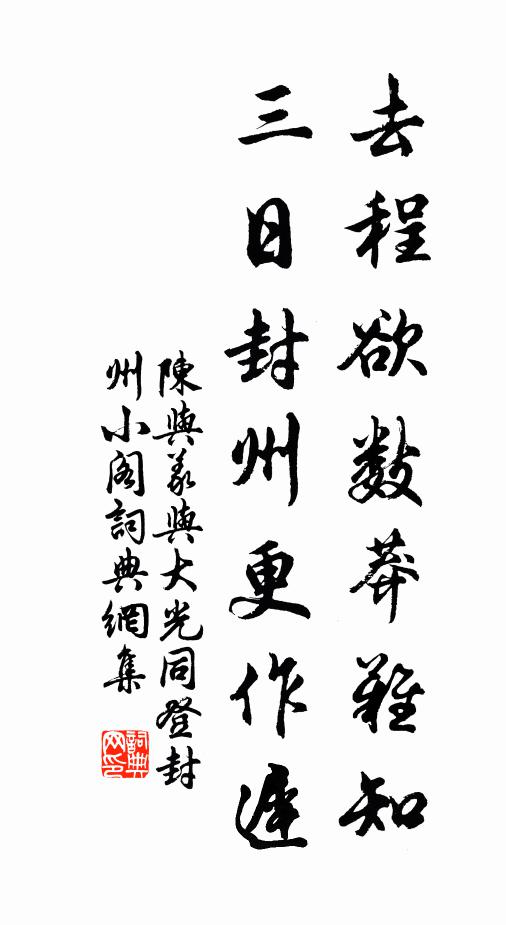 去程欲數莽難知
三日封州更作遲
陳與義與大光同登封
州小閣詞典網集
詞典網印